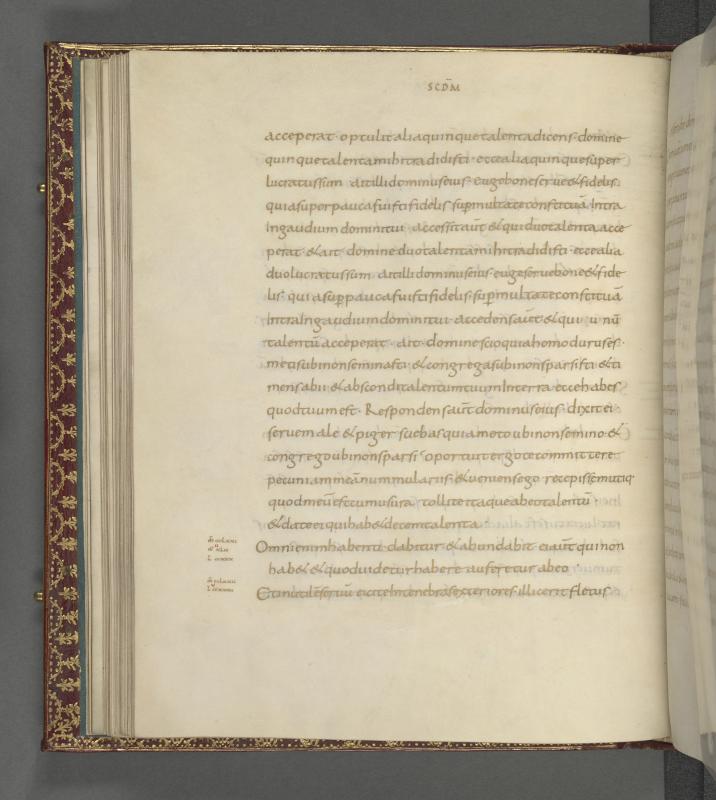 SCDM̄
acceperat · optulit alia quinque talenta dicens · domine
quinque talenta mihi tradidisti · ecce alia quinque super
lucratus sum ait illi dominus eius · euge bone serue & fidelis
quia super pauca fuisti fidelis · supra multa te constituā Intra
In gaudium domini tui accessit aūt & qui duo talenta acce
perat · & ait domine duo talenta mihi tradidisti · ecce alia
duo lucratus sum ait illi dominus eius · euge serue bone & fide
lis · quia sup pauca fuisti fidelis · sup multa te constituā
Intra In gaudium domini tui · accedens aūt & qui unū
talentū acceperat · ait · domine scio quia homo durus es ·
metis ubi non seminasti · & congregas ubi non sparsisti & ti
mens abii & abscondi talentum tuum In terra ecce habes
quod tuum est · Respondens aūt dominus eius · dixit ei
serue male & piger sciebas quia meto ubi non semino · &
congrego ubi non sparsi oportuit ergo te committere
pecuniam meā nummulariis · & ueniens ego recepissem utiq
quod meū est cum usura tollite itaque ab eo talentū ·
& date ei qui hab& decem talenta
Omni enim habenti dabitur & abundabit ei aūt qui non
hab& & quod uidetur habere auferetur ab eo
Et inutilē seruū eicite In tenebras exteriores illic erit fletus